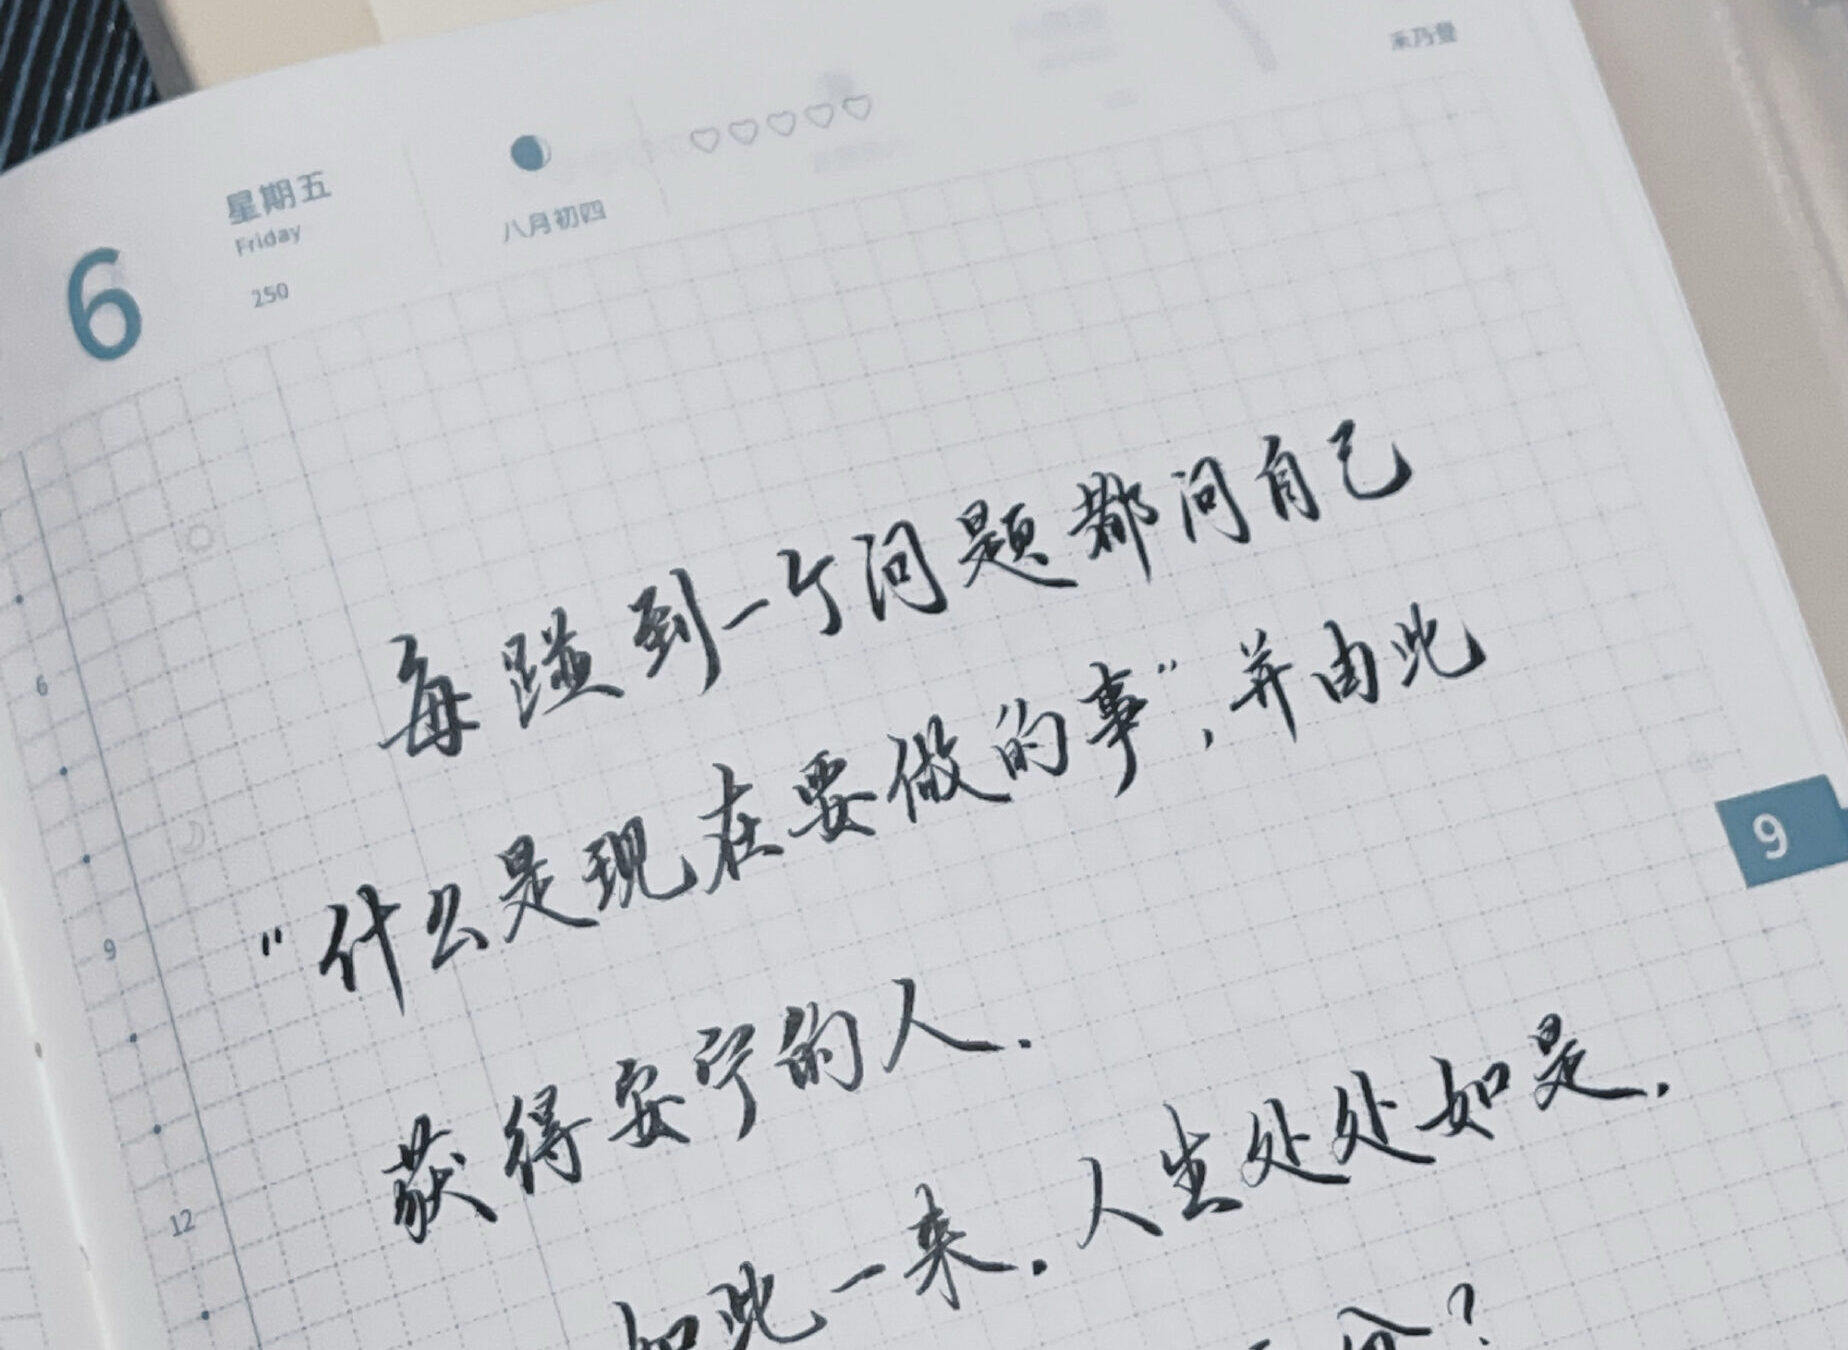 禾乃登
星期五
八月初四
6
Friday
250
每碰到一个问题都问自己
"什么是现在要做的事",并由此
获得安宁的人.
如此一来.人生处处如是.
?
6
9
12
9